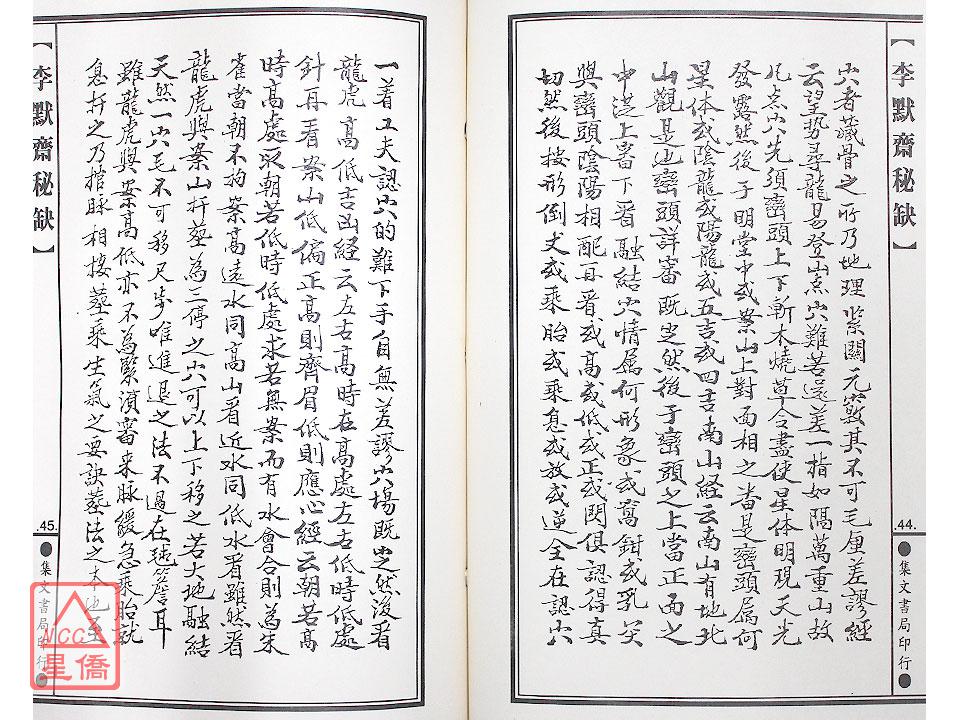 【李默齋秘缺】
穴者藏骨之所乃地理紧關元薮其不可毛厘差謬經
云望势尋龍易登山点穴难若还差一指如隔萬重山故
凡点穴先須巒頭上下斬木燒草令盡使星体明現天光
發露然後于明堂中或案山上對面相之畨是巒頭属何
星体或陰龍或陽龍或五吉或四吉南山経云南山有地北
山觀是也巒頭詳審既定然後于巒頭之上當正面之
中從上畨下看融結穴情属何形象或窩鉗或乳突
與巒頭陰陽相配再看或高或低或正或閃俱認得真
切然後接形倒丈或乘胎或乘息或放或逆全在認穴
.44.
●集文書局印行●
【李默齋秘缺】
一着工夫認穴的難下手自無差謬穴塲既定然後看
龍虎高低吉凶経云左右高時在高處左右低時低處
針再看案山低偏正高則齊眉低則應心經云朝若高
時高處求朝若低時低處求若無案而有水會合則為朱
雀當朝不拘案高遠水同高山看近水同低水看雖然看
龍虎與案山扦塟為三停之穴可以上下移之若大地融結
天然一穴毛不可移尺步唯進退之法不過在毬簷耳
雖龍虎與案高低亦不為緊湏審来脉緩急乘胎就
息扦之乃棺脉相接塟乘生氣之要訣塟法之本也至
.45.
●集文書局印行●
NCC
星僑